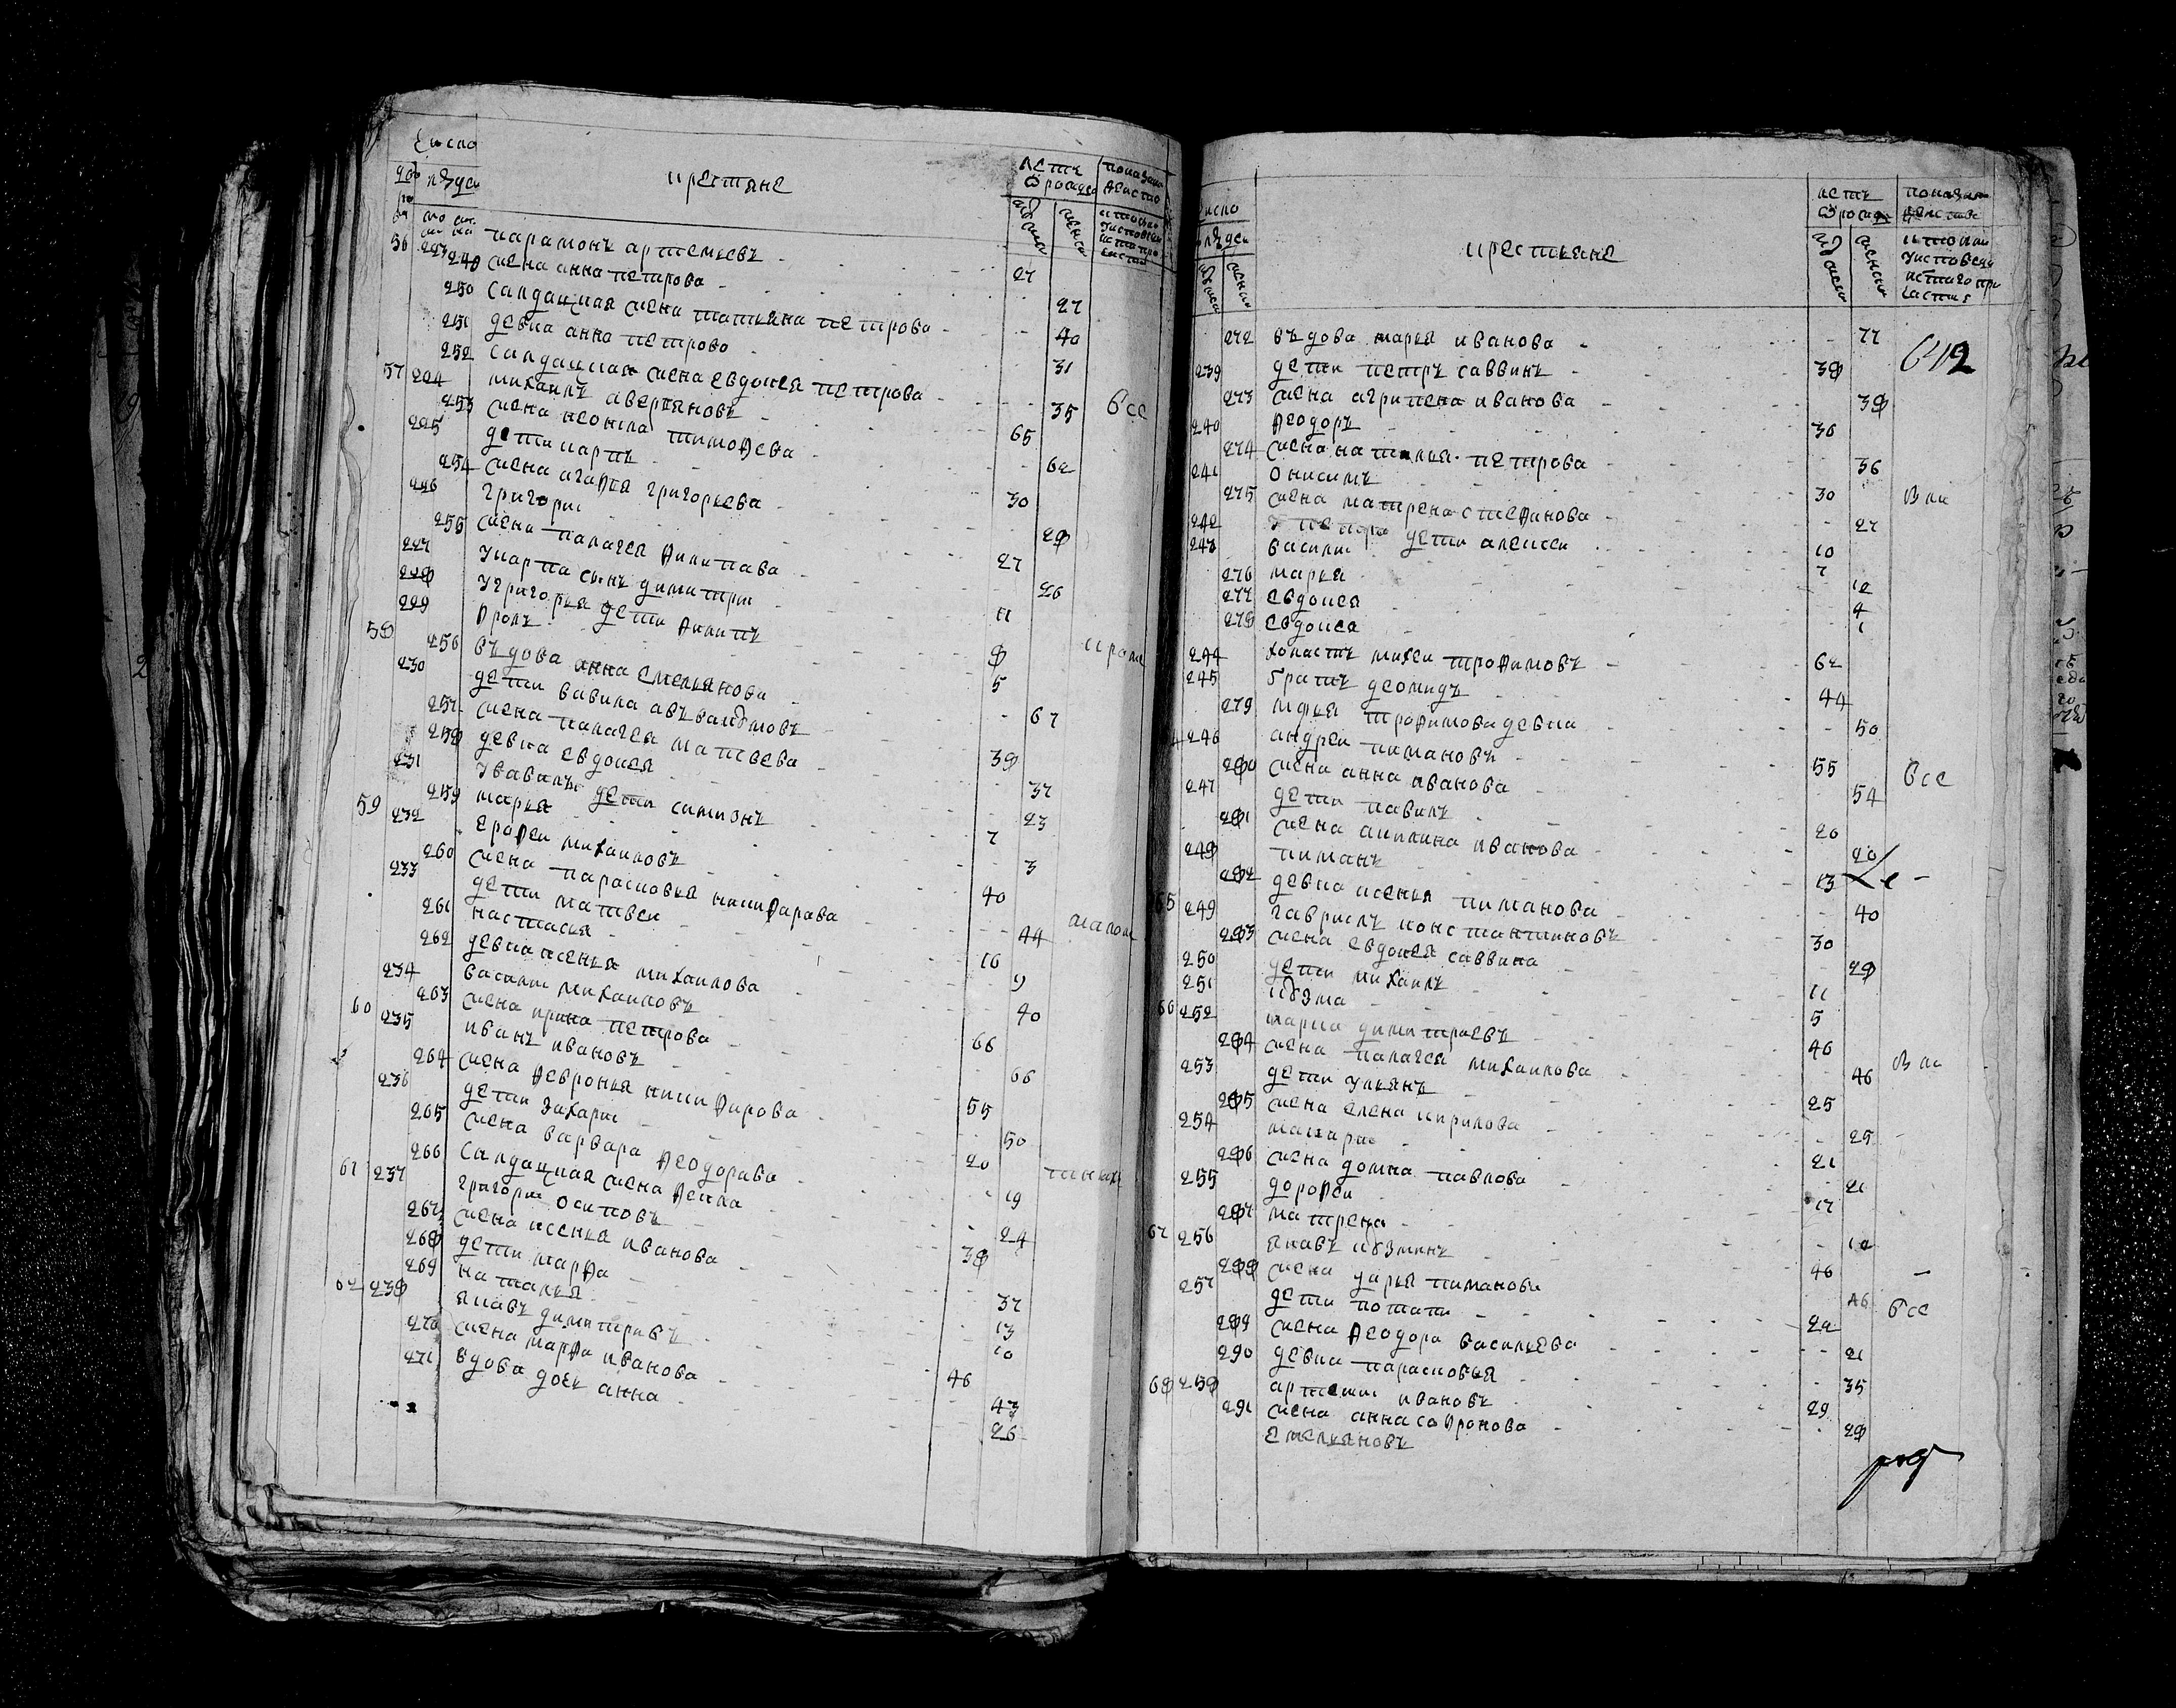 число
крестяне
летъ
ѿ рожде
56 223 парамонъ артемьевъ 27
249 жена анна петрова 27
250 салдацкая жена татьяна петрова 40
251 девка анна петрова 31
252 салдацкая жена евдокея петрова 35 все
57 224 михаилъ аверьяновъ 65
253 жена неонила тимофева 62
225 дети карпъ 30
254 жена агафья григорьева 28
226 григори 27
255 жена палагея филипава 26
227 у карпа сынъ димитри 11
228 у григорья дети филипъ 8
229 фролъ 5
58 256 въдова анна емельянова 67
230 дети вавила авъвакумовъ 38
257 жена палагея матвева 37
258 девка евдокея 23
231 у вавилы дети симионъ 7
259 марья 3
59 232 ерофеи михаиловъ 40
260 жена парасковья никифарава 44
233 дети матвеи 16
261 настасья 9
262 девка ксенья михаилова 40
234 василии михаиловъ 66
263 жена ирина петрова 66
60 235 иванъ ивановъ 55
264 жена февронья никифирова 50
236 дети захарии 20
265 жена варвара феодорава 19
266 салдацкая жена фекла 24
61 237 григории осиповъ 38
267 жена ксенья иванова 37
268 дети марфа 13
269 наталья 10
62 238 якавъ димитривъ 46
270 жена марфа иванова 43
271 вдова дочь анна 26
число
крестьяне
летъ
ѿ рожде
642
272 въдова марья иванова 77
239 дети петръ саввинъ 38
273 жена агрипена иванова 38
240 феодоръ 36
274 жена наталья петрова 36
241 онисимъ 30
275 жена матрена стефанова 27
242 у петра дети алексеи 10
243 василии 7
276 марья 12
277 евдокея 4
278 евдокея 1
244 холастъ михеи трофимовъ 62
245 братъ деомидъ 44
279 трофимова девка 50
246 андреи пимановъ 55 все
280 жена анна иванова 54
247 дети павилъ 20
281 жена акилина иванова 20
248 пиманъ 13
282 девка ксенья пиманова 40
65 249 гаврилъ константиновъ 30
283 жена евдокея саввина 28
250 дети михаилъ 11
251 кузма 5
66 252 марка димитриевъ 46
284 жена палагея михаилова 46
253 дети ульянъ 25
285 жена елена кирилова 25
254 макарии 21
286 жена домна павлова 21
255 дорофеи 17
287 матрена 12
67 256 якавъ кузминъ 46
288 жена дарья пиманова 46 все
257 дети потапи 22
289 жена феодора васильева 21
290 девка парасковья 35
68 258 артеми ивановъ 29
291 жена анна софронова 28
емельяновъ